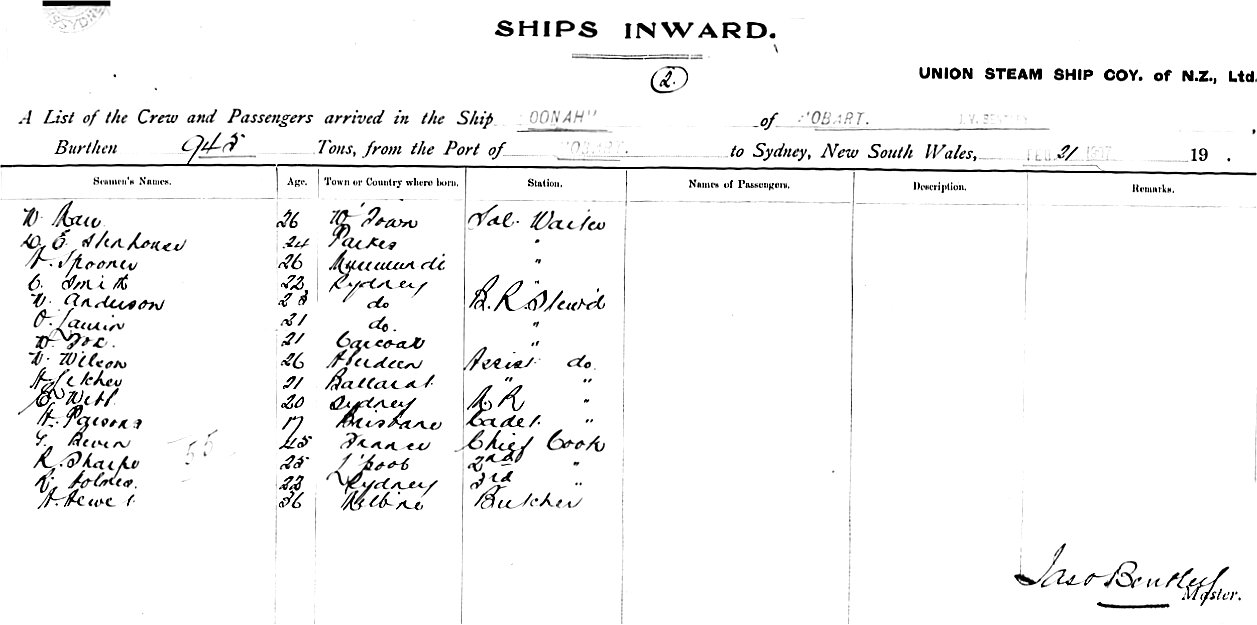 SHIPS INWARD.
2.
UNION STEAM SHIP COY. of N.Z., Ltd.
A List of the Crew and Passengers arrived in the Ship OONAH" of HOBART.
Burthen 945 Tons, from the Port of HOBART. to Sydney, New South Wales, FEB 21 1907 19 .
Seamen's Names. Age. Town or Country where born. Station. Names of Passengers. Description. Remarks.
W. 26 W'Town Sal. Waiter
E Stenhouse 24 Parkes "
H. Spooner 26 "
C. Smith 22 Sydney "
W. Anderson 23 do B. R. Stewd
O. 21 do. "
W. Fox. 21 Carcoar "
W. Wilson 26 Aberdeen Assist do.
A 21 Ballarat " "
E Webb 20 Sydney "
H. Parsons 17 Brisbane Cadet "
Bevin 45 France Chief Cook
55
R. Sharpe 25 L'pool 2nd "
R. Holmes. 22 Sydney 3rd "
H. Hewet 36 Melbne Butcher
Jas Bentley
Master.